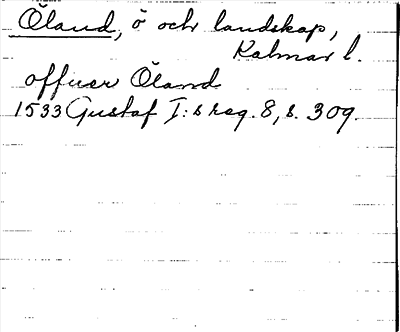 Öland, ö och landskap,
Kalmar l.
offuer Öland
1533 Gustaf I:s reg. 8, s. 309.